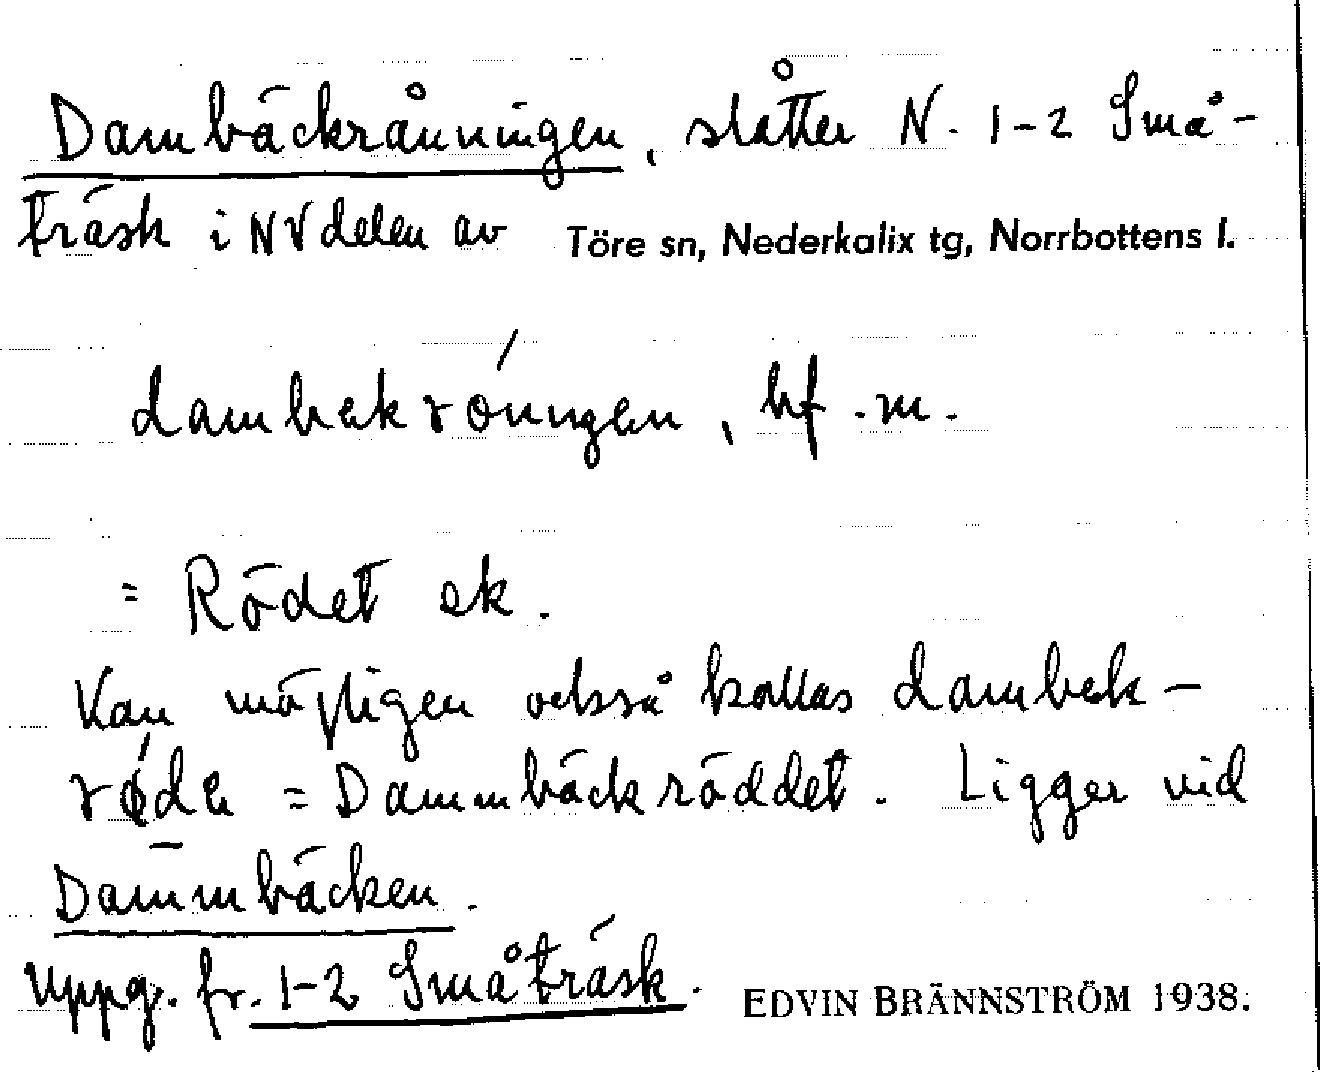 Dambäckråningen, slåtter N. 1-2 Små-
träsk i NV delen av Töre sn, Nederkalix tg, Norrbottens l.
dambekróningen, bf. m.
= Rödet ek.
Kan möjligen också kallas dambek-
rǿde = Dammbäckröddet. Ligger vid
Dammbäcken.
Uppg. fr. 1-2 Småträsk. EDVIN BRÄNNSTRÖM 1938.